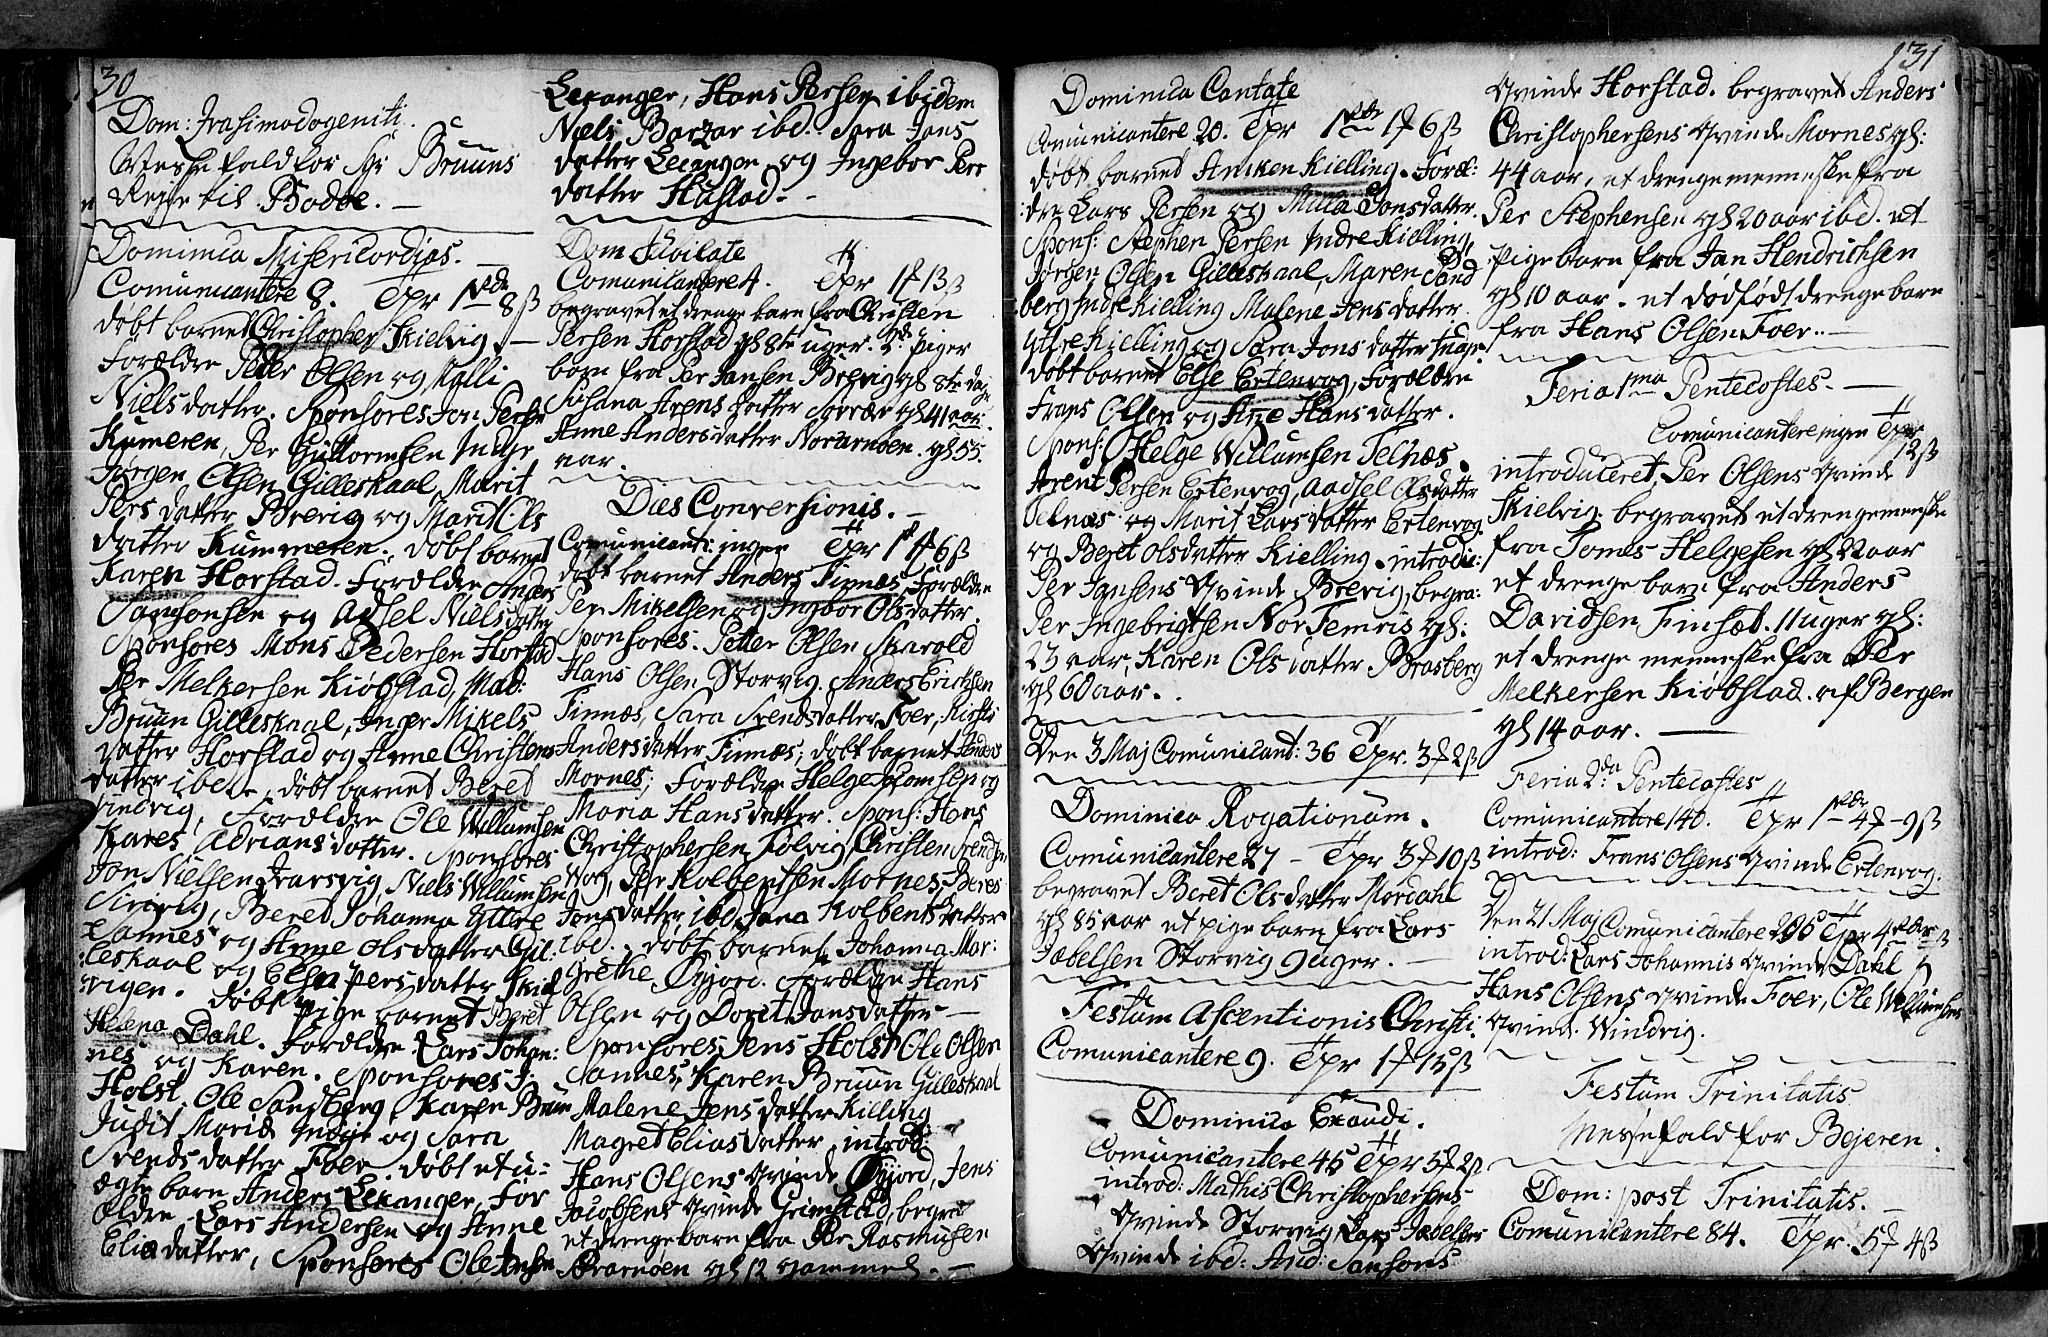 130
Dom: Qvasimodogeniti.
Messefald for Hr Bruuns
Rejse til Bodöe. —
Dominica Misericordias. —
Comunicantere 8. Tpr 1 rdr 8 ß
döbt barnet Christopher Skielvig. —
Forældre Peder Olsen og Malli
Nielsdatter. Sponsores Jon Persen
Kumeren, Per Guttormsen Indyr
Jörgen Olsen Gilleskaal, Marit
Persdatter Brevig og Marit Ols
datter Kummeren. döbt barnet
Karen Horstad. Forældre Anders
Samsonsen og Adsel Nielsdatter
Sponsores Mons Pedersen Horstad
Per Melkersen Kiöbstad, Mad:
Bruun Gilleskaal, Inger Mikels
datter Horstad og Anne Christens
datter ibd. döbt barnet Beret
Vindvig, Forældre Ole Willumsen
Kares Adriansdatter. Sponsores
Jon Nielsen Ivarsvig, Niels Willumsen
Beret Johanna Yttre
Sannes og Anne Olsdatter Gil:
leskaal og Elsa Persdatter Skiel
vigen. döbt pige barnet Beret
Helena Dahl. Forældre Lars Johan:
nes og Karen. Sponsores J:
Holst, Ole Sandberg, Karen Bruun
Judit Maria Indyr og Sara
Svendsdatter Foer. döbt et u:
ægte barn Anders Lexanger, For
ældre Lars Andersen og Anne
Eliadatter, Sponsores Ole Jensen
Lexanger, Hans Persen ibidem
Niels Barzar ibd. Sara Jons
datter Lexanger og Ingebor Pers
datter Hustad. —
Dom Jubilate
Comunicantere 4. Tpr 1 f 13 ß
begravet et drenge barn fra Christen
Persen Horstad gl 8te uger. 2de pige
börn fra Per Jansen Brevig gl 8te dage
Susana Arensdatter Sörvær gl 41 aar.
Anne Andersdatter Norarnöen. gl 55.
aar.
Dies Conversionis. —
Comunicant: ingen Tpr 1 f 6 ß
döbt barnet Anders Finnæs, Forældre
Per Mikelsen og Ingbor Olsdatter.
Sponsores. Petter Olsen Skarold
Hans Olsen Storvig. Anders Erichsen
Finnæs, Sara Svendsdatter Foer, Kirsti
Andersdatter Finnæs; döbt barnet Anders
Mornes; Forældre Helge Tomsen og
Maria Hansdatter. Spons: Hans
Christophersen Sölvig, Christen Svendsen
Vog, Per Kolbentsen Mornes, Beres
Jonsdatter ibd, Jana Kolbentsdatter
ibd. döbt barnet Johanna Mar:
grethe Öyjord. Forældre Hans
Olsen og Doret Jansdatter —
Sponsores Jens Holst, Ole Olsen
Sannes, Karen Bruun Gilleskaal
Malene Jensdatter Killing
Magret Eliasdatter, introd:
Hans Olsens Qvinde Öyjord, Jens
Jacobsens Qvinde Grimstad, begra:
et drenge barn fra Per Rasmusen
Sörarnöen gl 12 gammel. —
131
Dominica Cantate
Comunicantere 20. Tpr 1 rdr 1 f 6 ß
döbt barnet Anken Kielling. Foræl:
dre Lars Persen og Milla Jonsdatter.
Spons: Stephen Persen Indre Kielling,
Jörgen Olsen Gilleskaal, Maren Sand
berg Indre Kielling Malene Jensdatter
Yttre Kielling og Sara Jonsdatter Indyr
döbt barnet Else Ertenvog, Forældre
Frans Olsen og Ane Hansdatter.
Spons: Helge Willumsen Telnæs.
Arent Persen Ertenvog, Aadsel Olsdatter
Telnæs og Marit Larsdatter Ertenvog
og Beret Olsdatter Kielling. introdu:
Per Jansens Qvinde Brevig, begra:
Per Ingebrigtsen Nor Femris gl:
23 aar, Karen Olsdatter Brasberg
gl 60 aar.
Den 3 Maj Comunicant: 36 Tpr. 3 f 2 ß
Dominica Rogationum.
Comunicantere 27 — Tpr 3 f 10 ß
begravet Beret Olsdatter Mordahl
gl 85 aar et pige barn fra Lars
Jæbelsen Storvig 9 uger. —
Festum Ascentionis Christi
Comunicantere 9. Tpr 1 f 15 ß
Dominica Exaudi.
Comunicantere 45 Tpr 3 f 2 ß
introd: Mathis Christophersens
Qvinde Storvig, Lars Jæbelsens
Qvinde ibd: And: Sansons
Qvinde Horstad. begravet Anders
Christophersens Qvinde Mornes gl:
44 aar, et drengemenneske fra
Per Stephensen gl 20 aar ibd. et
Pige barn fra Jan Hendrichsen
gl 10 aar. et dödfödt drenge barn
fra Hans Olsen Foer. —
Feria 1ma Pentecostes. —
Comunicantere ingen Tpr
12 ß
introduceret, Per Olsens Qvinde
Skielvig. begravet et drengemenske
fra Tomes Helgesen gl 22 aar
et drenge barn fra Anders
Davidsen Finsæt. 11 uger gl:
et drenge menneske fra Per
Melkersen Kiöbstad. af Bergen
gl 14 aar. —
Feria 2da Pentecostes
Comunicantere 140. Tpr 1 rdr 4 f — 9 ß
introd: Frans Olsens Qvinde Ertenvog.
Den 21 Maj Comunicantere 206 Tpr 4 rdr
introd: Lars Johannis Qvinde Dahl
Hans Olsens Qvinde Foer, Ole Willumsens
Qvinde Windvig.
Festum Trinitatis
Messefald for Bejeren.
Dom: post Trinitatis. —
Comunicantere 84. Tpr. 5 f 4 ß